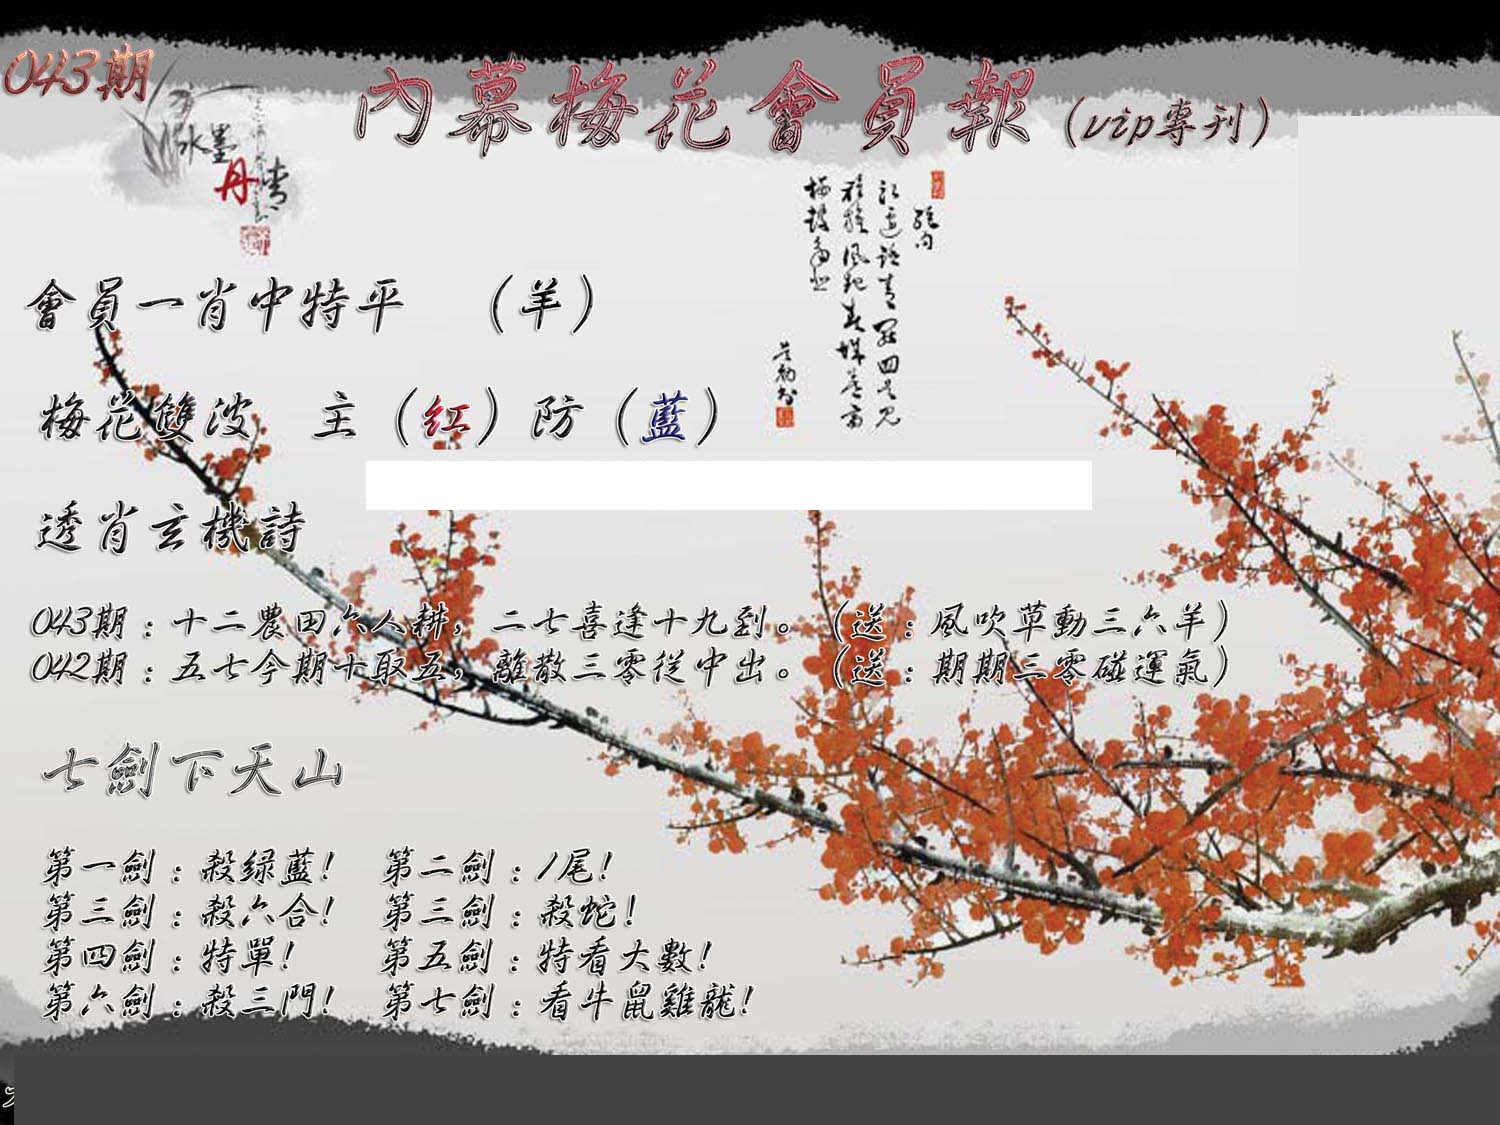 043期
內幕梅花會員報（vip專刊）
水墨
丹青
會員一肖中特平 （羊）
梅花雙波 主（紅）防（藍）
透肖玄機詩
043期：十二農田六人耕，二七喜逢十九到。（送：風吹草動三六羊）
042期：五七今期十取五，離散三零從中出。（送：期期三零碰運氣）
七劍下天山
第一劍：殺绿藍! 第二劍：1尾!
第三劍：殺六合! 第三劍：殺蛇!
第四劍：特單! 第五劍：特看大數!
第六劍：殺三門! 第七劍：看牛鼠雞龍!